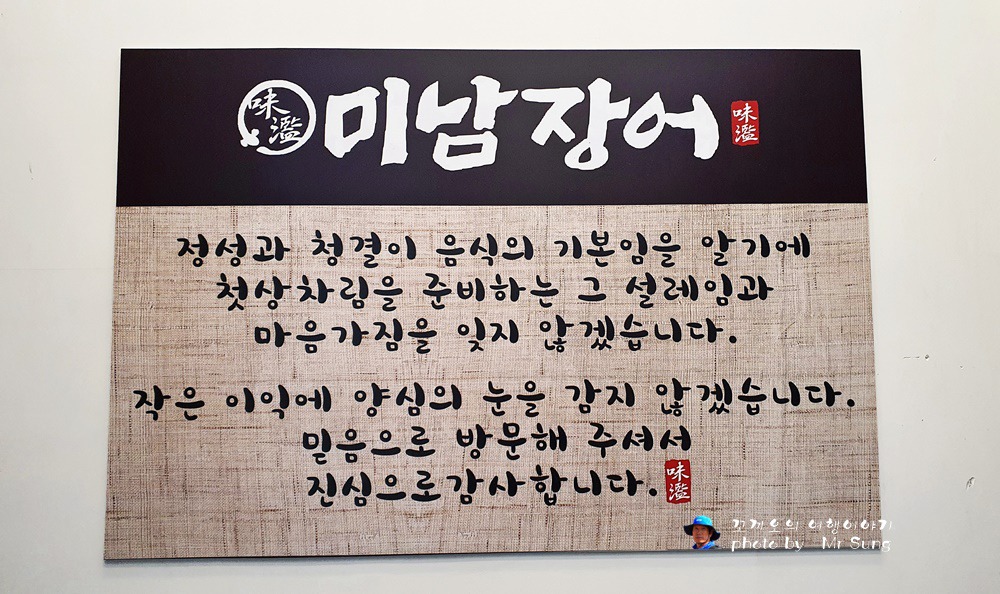 味濫 미남장어 味濫
정성과 청결이 음식의 기본임을 알기에
첫상차림을 준비하는 그 설레임과
마음가짐을 잊지 않겠습니다.
작은 이익에 양심의 눈을 감지 않겠습니다.
믿음으로 방문해 주셔서
진심으로감사합니다. 味濫
꼬께오의 여행이야기
photo by Mr Sung